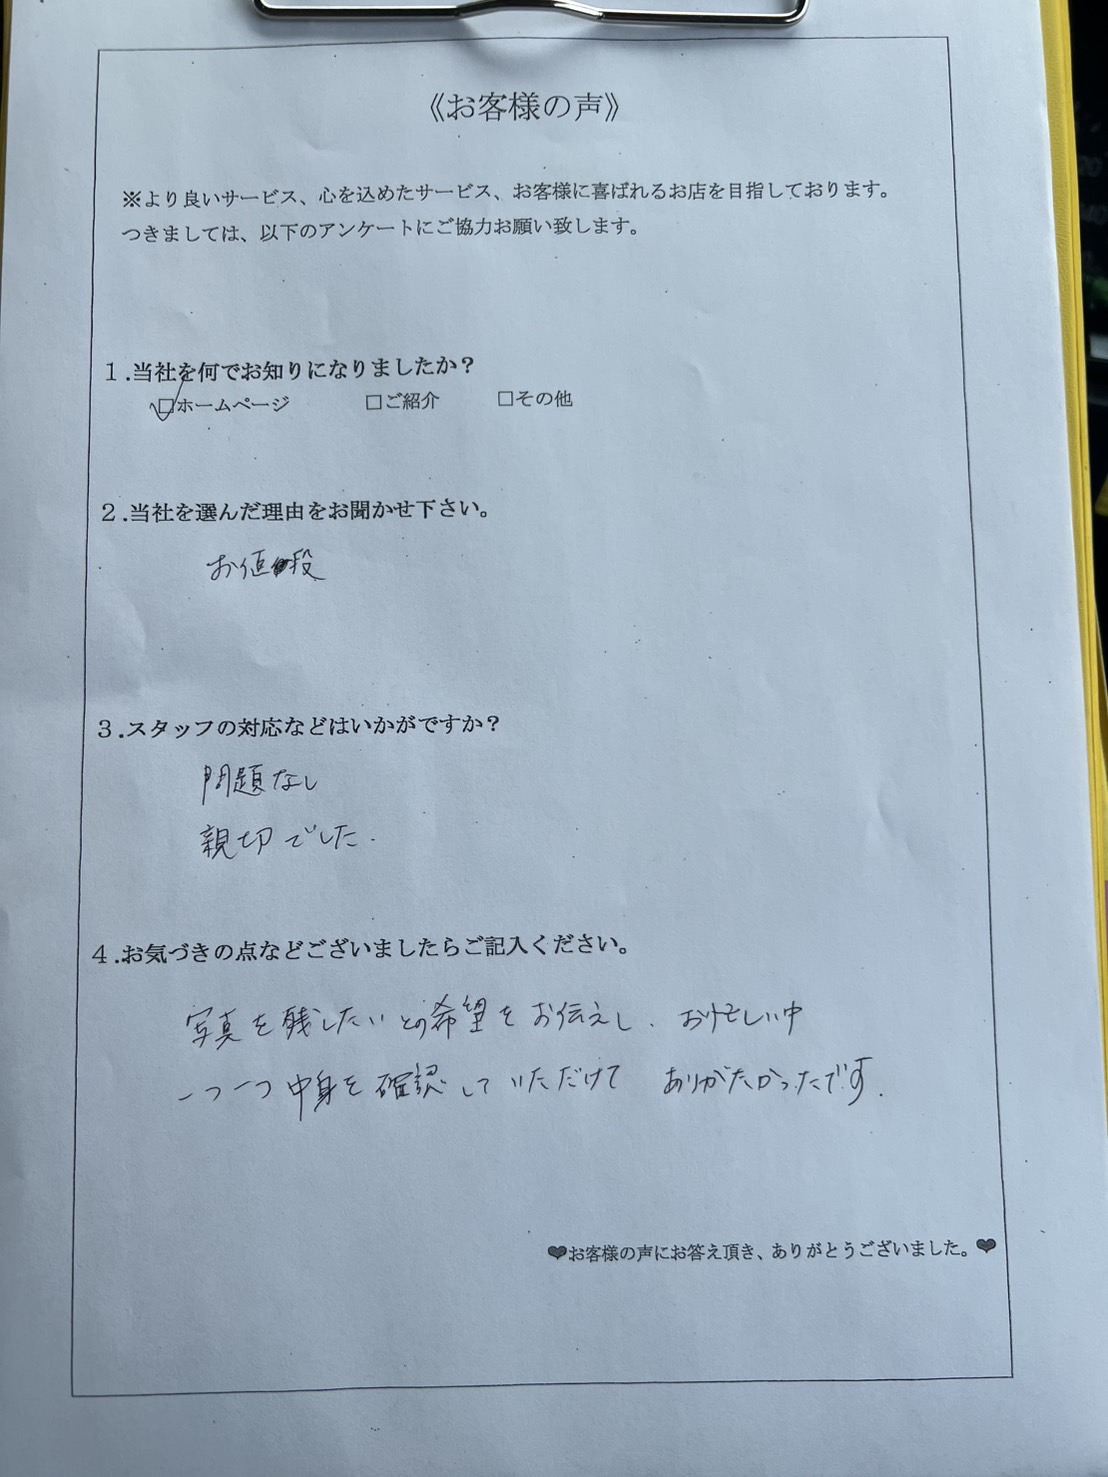 《お客様の声》
※より良いサービス、心を込めたサービス、お客様に喜ばれるお店を目指しております。
つきましては、以下のアンケートにご協力お願い致します。
1.当社を何でお知りになりましたか？
☑ホームページ □ご紹介 □その他
2.当社を選んだ理由をお聞かせ下さい。
お値段
3.スタッフの対応などはいかがですか？
問題なし
親切でした.
4.お気づきの点などございましたらご記入ください。
写真を残したいとの希望をお伝えし、お忙しい中
一つ一つ中身を確認していただけて ありがたかったです.
❤お客様の声にお答え頂き、ありがとうございました。❤